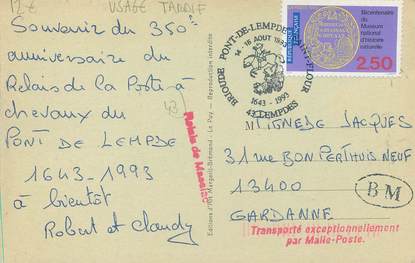 12€ USAGE TARDIF
Souvenir du 350e
anniversaire du
Relais de la Poste à
chevaux du
PONT DE LEMPDE
1643-1993
à bientôt
Robert et Claudy
43
Relais de Massiac
BRIOUDE PONT-DE-LEMPDES ST-FLOUR
14-16 AOUT 1993
1643-1993
43 LEMPDES
RÉPUBLIQUE FRANÇAISE
Bicentenaire
du Museum
national
d'histoire
naturelle
2.50
MIGNEDE JACQUES
31 rue BON PERTHUIS NEUF
13400
GARDANNE
BM
Transporté exceptionnellement
par Malle-Poste.